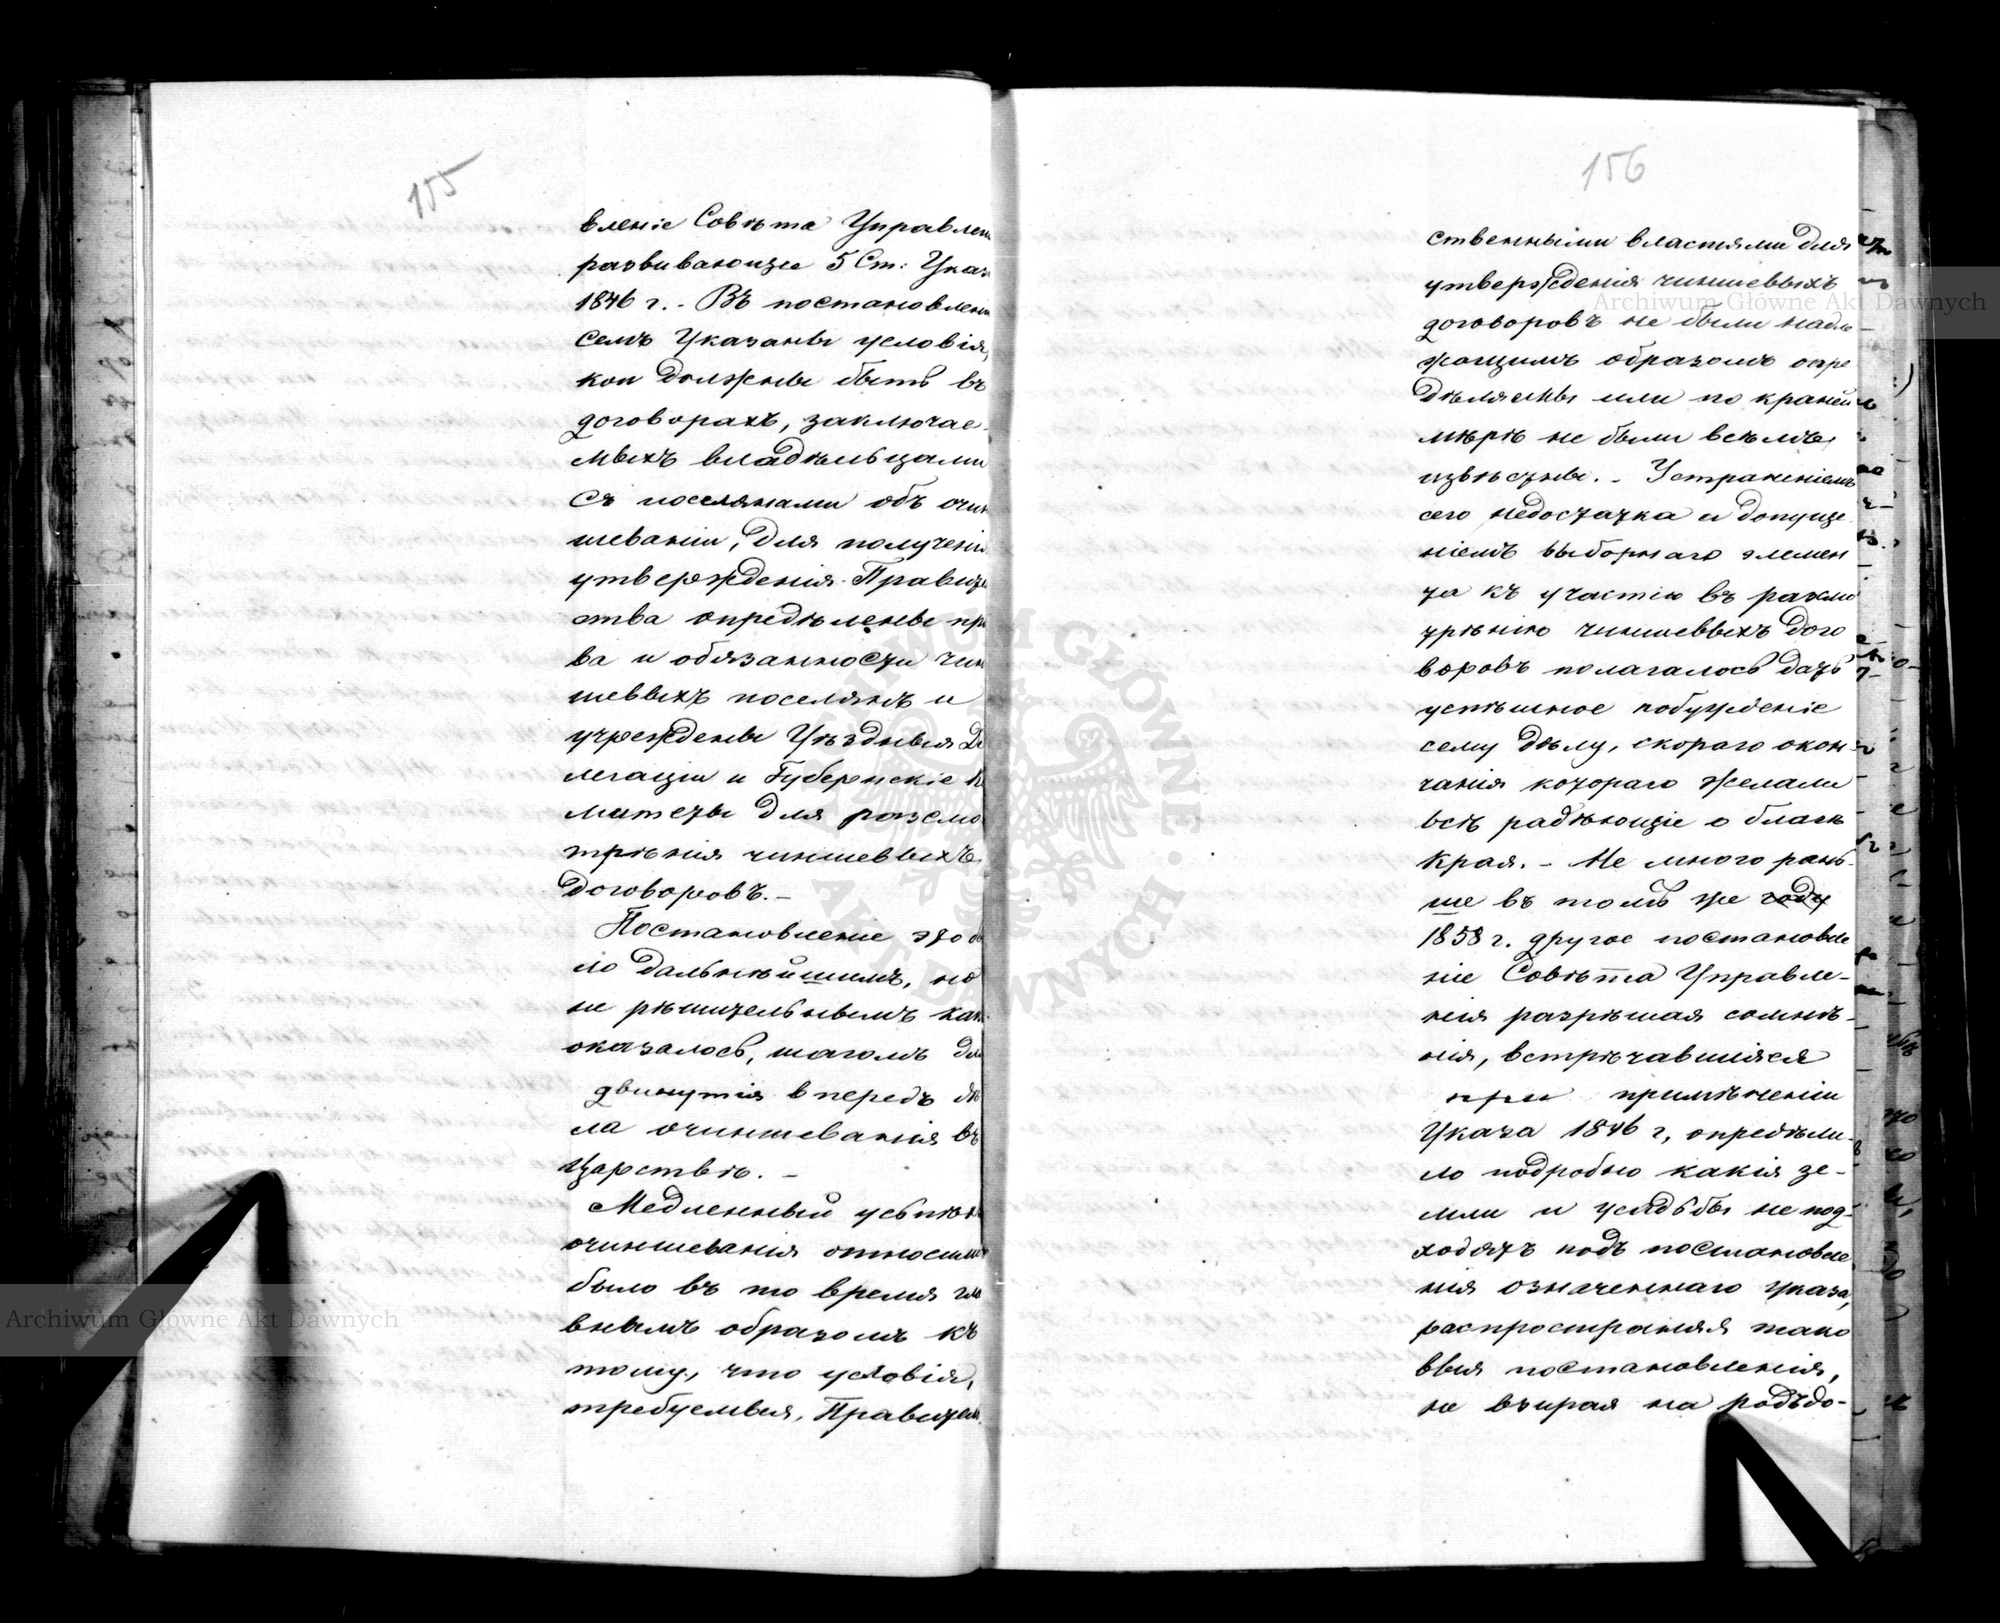 155
вленіе Совѣта Управлен
развивающее 5 Ст: Указ
1846 г. - Въ постановлен
семъ Указаны условія,
кои должны быть въ
договорахъ, заключае-
мыхъ владѣльцами
съ поселянами объ очин
шеваніи, для полученія
утвержденія Правител
ства опредѣлены пра
ва и обязанности чин
шевыхъ поселянъ и
учреждены Уѣздныя Де
легаціи и Губернскіе Ко
митеты для разсмо
трѣнія чиншевыхъ
договоровъ. -
Постановленіе это бы
ло дальнѣйшимъ, но
не рѣшительнымъ как
оказалось, шагомъ для
двинутія впередъ дѣ
ла очиншеванія въ
Царствѣ. -
Медленный успѣхъ
очиншеванія относим
было въ то время гла
внымъ образомъ къ
тому, что условія,
требуемыя, Правител
156
ственными властями для
утвержденія чиншевыхъ
договоровъ не были надле
жащимъ образомъ опре
дѣляемы или по крайней
мѣрѣ не были всѣмъ
извѣстны. - Устраненіемъ
сего недостатка и допуще
ніемъ выборнаго элемен
та къ участію въ разсмо
трѣнію чиншевыхъ дого
воровъ полагалось дать
успѣшное побужденіе
сему дѣлу, скораго окон
чанія котораго желали
всѣ радѣющіе о благѣ
Края. - Не много рань-
ше въ томъ же году
1858 г. другое постановле
ніе Совѣта Управле-
нія разрѣшая сомнѣ-
нія, встрѣчавшіяся
при примѣненіи
Указа 1846 г, опредѣли-
ло подробно какія зе-
мли и усадьбы не под-
ходятъ подъ постановле
нія означеннаго указа,
распространяя тако
выя постановленія,
не взирая на родъ до-
Archiwum Główne Akt Dawnych
Archiwum Główne Akt Dawnych
ARCHIWUM GŁÓWNE AKT DAWNYCH